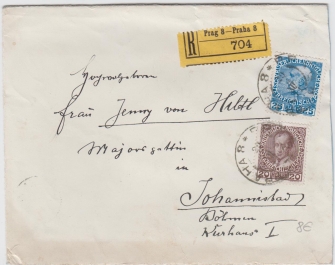 R
Prag 8 — Praha 8
704
Hochwohlgeboren
Frau Jenny von Hiltl
Majorsgattin
in
Johannisbad
Böhmen
Kurhaus I
8€
25
20 20